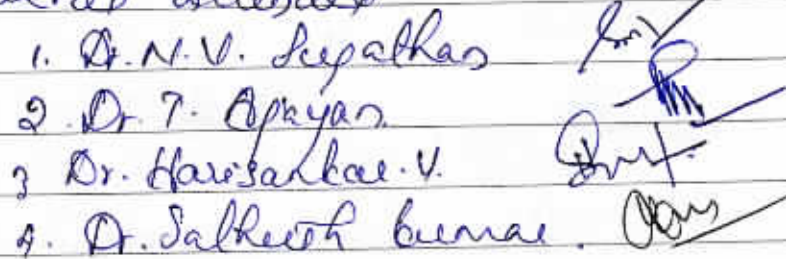 1. Dr. N. V. Sugathan
2. Dr. T. Ajayan
3 Dr. Harisankar. V.
4. Dr. Satheesh Kumar.